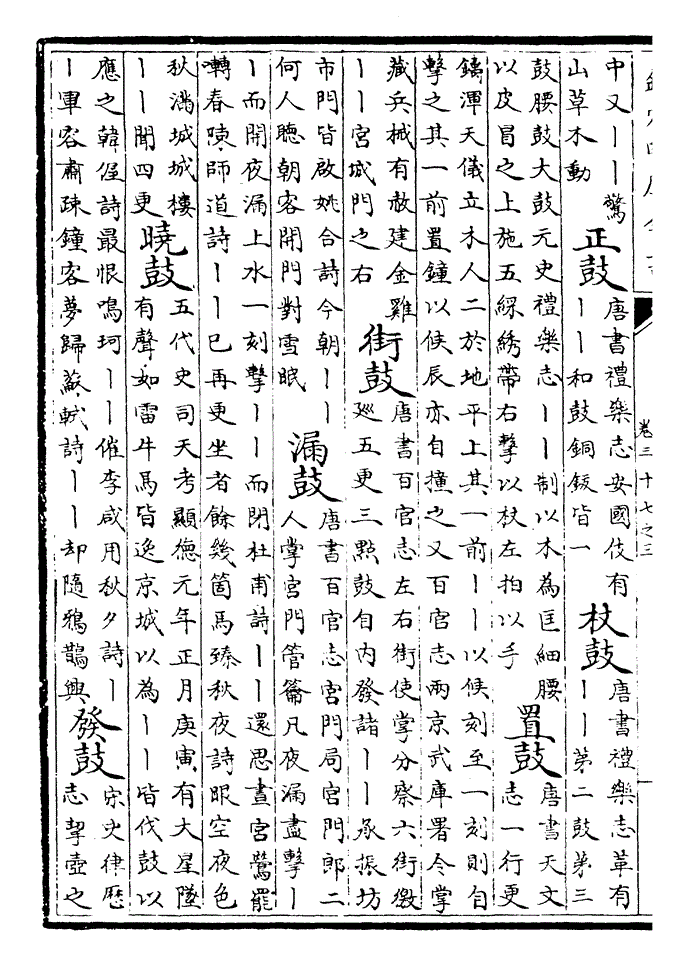 欽定四庫全書
卷三十七之三
中又｜｜驚
山草木動
正鼓
唐書禮樂志安國伎有
｜｜和鼓銅鈸皆一
杖鼓
唐書禮樂志革有
｜｜第二鼓第三
鼓腰鼓大鼓元史禮樂志｜｜制以木為匡細腰
以皮冒之上施五綵綉帶右擊以杖左拍以手
置鼓
唐書天文
志一行更
鑄渾天儀立木人二於地平上其一前｜｜以候刻至一刻則自
擊之其一前置鐘以候辰亦自撞之又百官志兩京武庫署令掌
藏兵械有赦建金雞
｜｜宮城門之右
街鼓
唐書百官志左右街使掌分察六街徼
廵五更三點鼓自內發諸｜｜承振坊
市門皆啟姚合詩今朝｜｜
何人聽朝客開門對雪眠
漏鼓
唐書百官志宮門局宮門郎二
人掌宮門管籥凡夜漏盡擊｜
｜而開夜漏上水一刻擊｜｜而閉杜甫詩｜｜還思晝宮鶯罷
囀春陳師道詩｜｜已再更坐者餘幾箇馬臻秋夜詩眼空夜色
秋滿城城樓
｜｜閙四更
曉鼓
五代史司天考顯徳元年正月庚寅有大星墜
有聲如雷牛馬皆逸京城以為｜｜皆伐鼓以
應之韓偓詩最恨鳴珂｜｜催李咸用秋夕詩｜
｜軍容肅疎鐘客夢歸蘇軾詩｜｜却隨鴉鵲興
發鼓
宋史律歷
志挈壺之